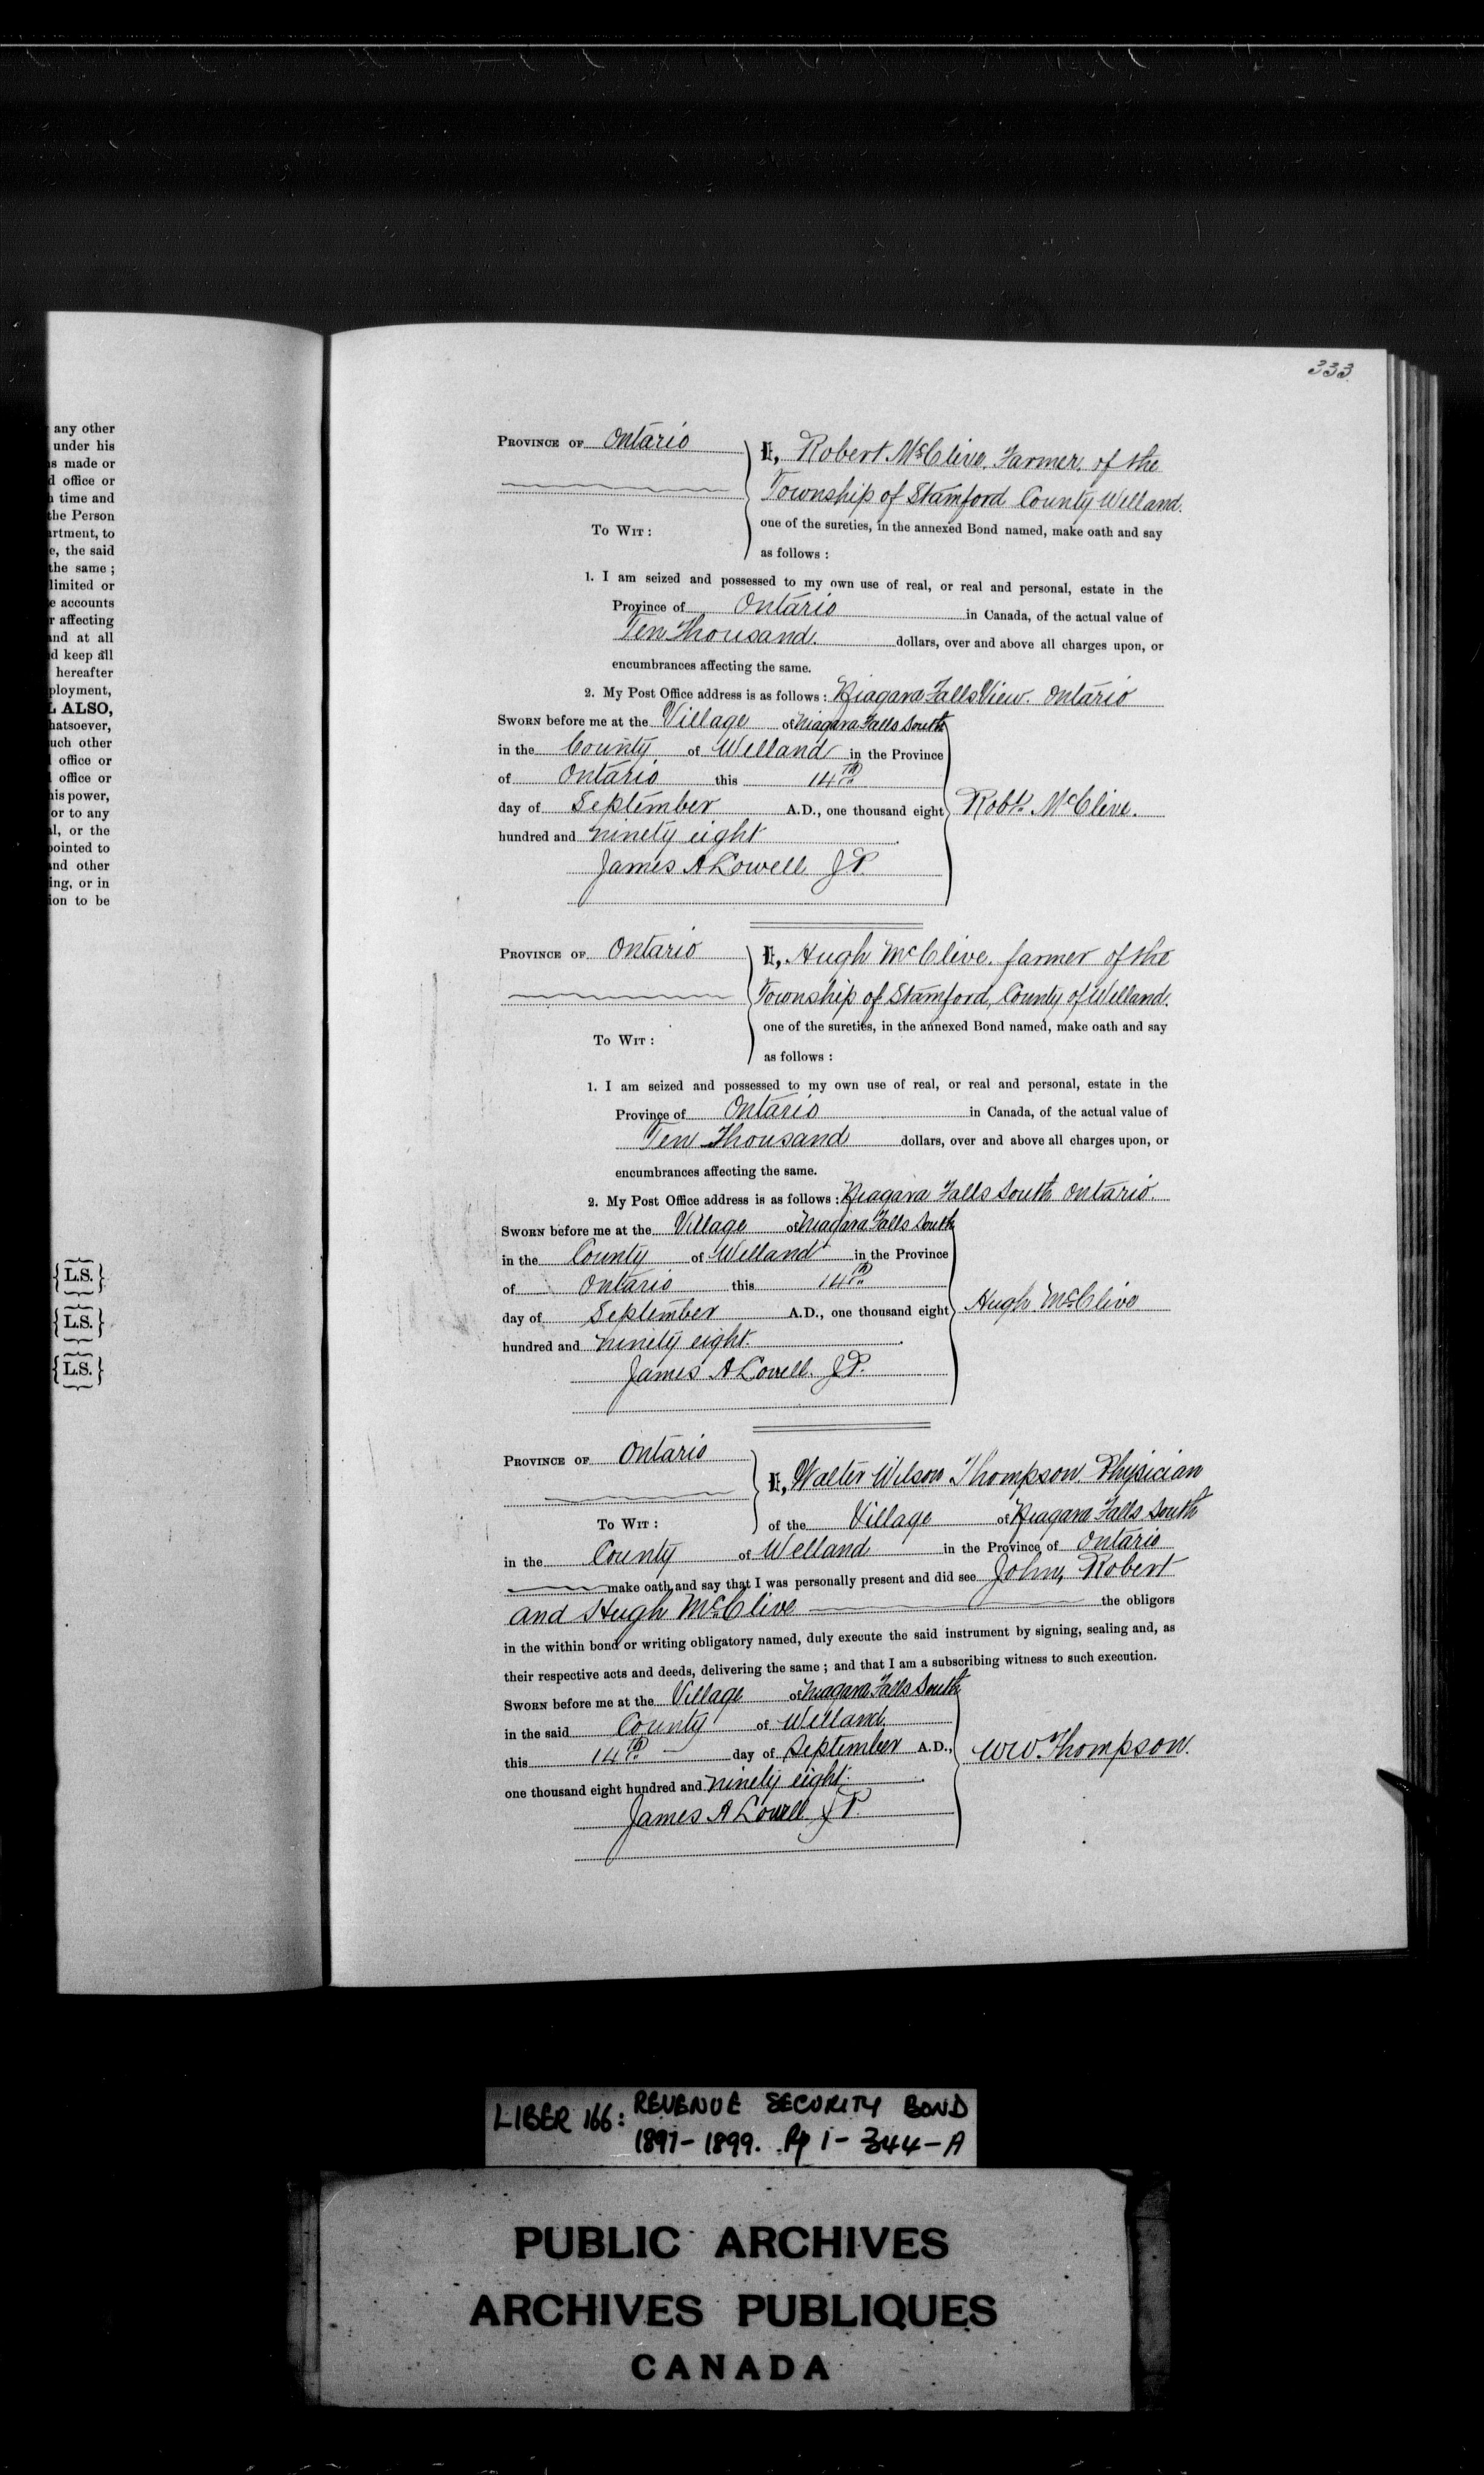 333
any other
under his
s made or
d office or
time and
the Person
artment, to
e, the said
the same ;
limited or
e accounts
r affecting
and at all
d keep all
hereafter
ployment,
ALSO,
hatsoever,
uch other
office or
office or
is power,
or to any
l, or the
pointed to
and other
ing, or in
ion to be
{L.S.}
{L.S.}
{L.S.}
PROVINCE OF Ontario
I, Robert McClive. Farmer. of the
Township of Stamford County Welland.
TO WIT :
one of the sureties, in the annexed Bond named, make oath and say
as follows :
1. I am seized and possessed to my own use of real, or real and personal, estate in the
Province of Ontario in Canada, of the actual value of
Ten Thousand. dollars, over and above all charges upon, or
encumbrances affecting the same.
2. My Post Office address is as follows : Niagara Falls View. Ontario
SWORN before me at the Village of Niagara Falls South
in the County of Welland in the Province
of Ontario this 14th
day of September A.D., one thousand eight
hundred and ninety eight.
Robt. McClive.
James A Lowell J.P.
PROVINCE OF Ontario
I, Hugh McClive. farmer of the
Township of Stamford, County of Welland.
TO WIT :
one of the sureties, in the annexed Bond named, make oath and say
as follows :
1. I am seized and possessed to my own use of real, or real and personal, estate in the
Province of Ontario in Canada, of the actual value of
Ten Thousand dollars, over and above all charges upon, or
encumbrances affecting the same.
2. My Post Office address is as follows : Niagara Falls South Ontario.
SWORN before me at the Village of Niagara Falls South
in the County of Welland in the Province
of Ontario this 14th
day of September A.D., one thousand eight
hundred and ninety eight.
Hugh McClive
James A Lowell. J.P.
PROVINCE OF Ontario
I, Walter Wilson Thompson Physician
TO WIT :
of the Village of Niagara Falls South
in the County of Welland in the Province of Ontario
make oath and say that I was personally present and did see John, Robert
and Hugh McClive the obligors
in the within bond or writing obligatory named, duly execute the said instrument by signing, sealing and, as
their respective acts and deeds, delivering the same ; and that I am a subscribing witness to such execution.
SWORN before me at the Village of Niagara Falls South
in the said County of Welland
this 14th day of September A.D.,
one thousand eight hundred and ninety eight.
WW Thompson.
James A Lowell J.P.
LIBER 166: REVENUE SECURITY BOND
1897-1899. Pp 1-344-A
PUBLIC ARCHIVES
ARCHIVES PUBLIQUES
CANADA